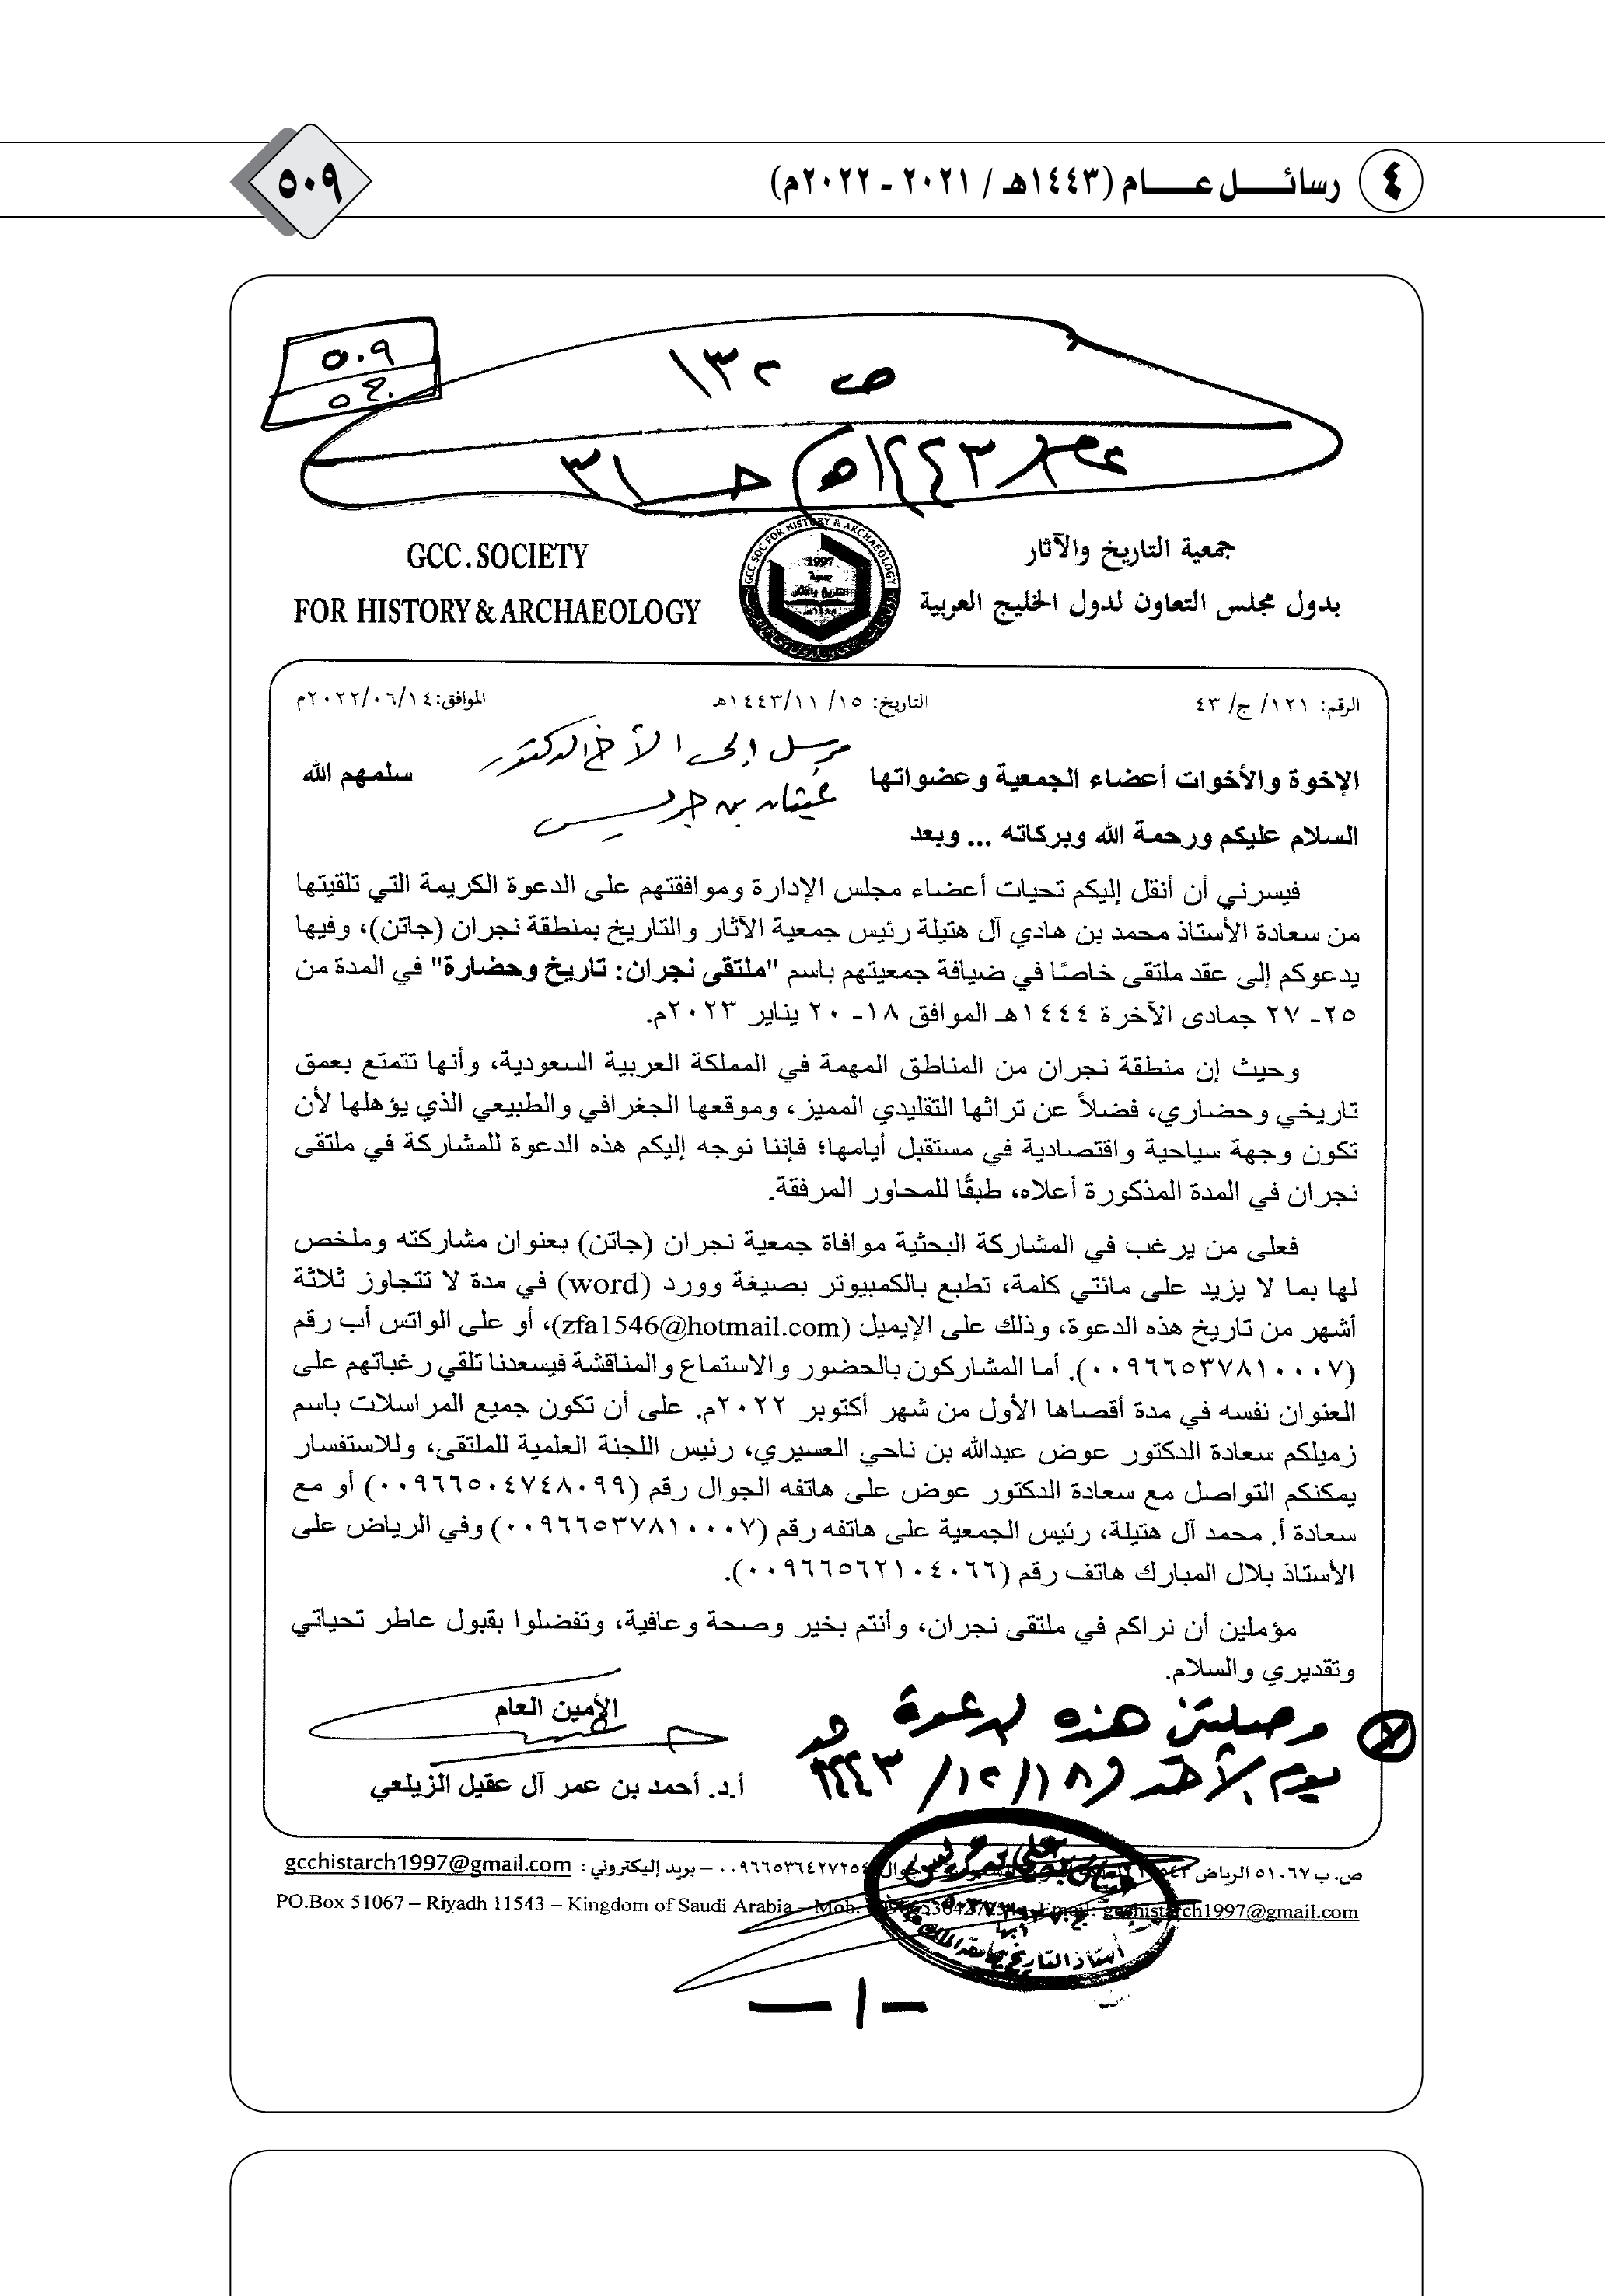 ٤ رسائـــل عـــام (١٤٤٣هـ / ٢٠٢١ - ٢٠٢٢م)
٥٠٩
٥٠٩
ص ١٣٢
GCC. SOCIETY
FOR HISTORY & ARCHAEOLOGY
GCC SOC FOR HISTORY & ARCHAEOLOGY
1997
جمعية التاريخ والآثار
بدول مجلس التعاون لدول الخليج العربية
الرقم: ١٢١/ ج/ ٤٣ التاريخ: ١٥/ ١٤٤٣/١١هـ الموافق: ٢٠٢٢/٠٦/١٤م
مرسل إلى الأخ الدكتور
الإخوة والأخوات أعضاء الجمعية وعضواتها سلمهم الله
غيثان بن جريس
السلام عليكم ورحمة الله وبركاته ... وبعد
فيسرني أن أنقل إليكم تحيات أعضاء مجلس الإدارة وموافقتهم على الدعوة الكريمة التي تلقيتها
من سعادة الأستاذ محمد بن هادي آل هتيلة رئيس جمعية الآثار والتاريخ بمنطقة نجران (جاتن)، وفيها
يدعوكم إلى عقد ملتقى خاصًا في ضيافة جمعيتهم باسم "ملتقى نجران: تاريخ وحضارة" في المدة من
٢٥- ٢٧ جمادى الآخرة ١٤٤٤هـ الموافق ١٨- ٢٠ يناير ٢٠٢٣م.
وحيث إن منطقة نجران من المناطق المهمة في المملكة العربية السعودية، وأنها تتمتع بعمق
تاريخي وحضاري، فضلاً عن تراثها التقليدي المميز، وموقعها الجغرافي والطبيعي الذي يؤهلها لأن
تكون وجهة سياحية واقتصادية في مستقبل أيامها؛ فإننا نوجه إليكم هذه الدعوة للمشاركة في ملتقى
نجران في المدة المذكورة أعلاه، طبقًا للمحاور المرفقة.
فعلى من يرغب في المشاركة البحثية موافاة جمعية نجران (جاتن) بعنوان مشاركته وملخص
لها بما لا يزيد على مائتي كلمة، تطبع بالكمبيوتر بصيغة وورد (word) في مدة لا تتجاوز ثلاثة
أشهر من تاريخ هذه الدعوة، وذلك على الإيميل (zfa1546@hotmail.com)، أو على الواتس أب رقم
(٠٠٩٦٦٥٣٧٨١٠٠٠٧). أما المشاركون بالحضور والاستماع والمناقشة فيسعدنا تلقي رغباتهم على
العنوان نفسه في مدة أقصاها الأول من شهر أكتوبر ٢٠٢٢م. على أن تكون جميع المراسلات باسم
زميلكم سعادة الدكتور عوض عبدالله بن ناحي العسيري، رئيس اللجنة العلمية للملتقى، وللاستفسار
يمكنكم التواصل مع سعادة الدكتور عوض على هاتفه الجوال رقم (٠٠٩٦٦٥٠٤٧٤٨٠٩٩) أو مع
سعادة أ. محمد آل هتيلة، رئيس الجمعية على هاتفه رقم (٠٠٩٦٦٥٣٧٨١٠٠٠٧) وفي الرياض على
الأستاذ بلال المبارك هاتف رقم (٠٠٩٦٦٥٦٢١٠٤٠٦٦).
مؤملين أن نراكم في ملتقى نجران، وأنتم بخير وصحة وعافية، وتفضلوا بقبول عاطر تحياتي
وتقديري والسلام.
الأمين العام
أ.د. أحمد بن عمر آل عقيل الزيلعي
وصلتني هذه الدعوة
يوم الأحد ١٨/ ١٢/ ١٤٤٣
ص. ب ٥١٠٦٧ الرياض ١١٥٤٣ جوال ٠٠٩٦٦٥٣٦٤٢٧٢٥٤ – بريد إليكتروني : gcchistarch1997@gmail.com
PO.Box 51067 – Riyadh 11543 – Kingdom of Saudi Arabia – Mob. Email: gcchistarch1997@gmail.com
أستاذ التاريخ بجامعة الملك
- ١ -